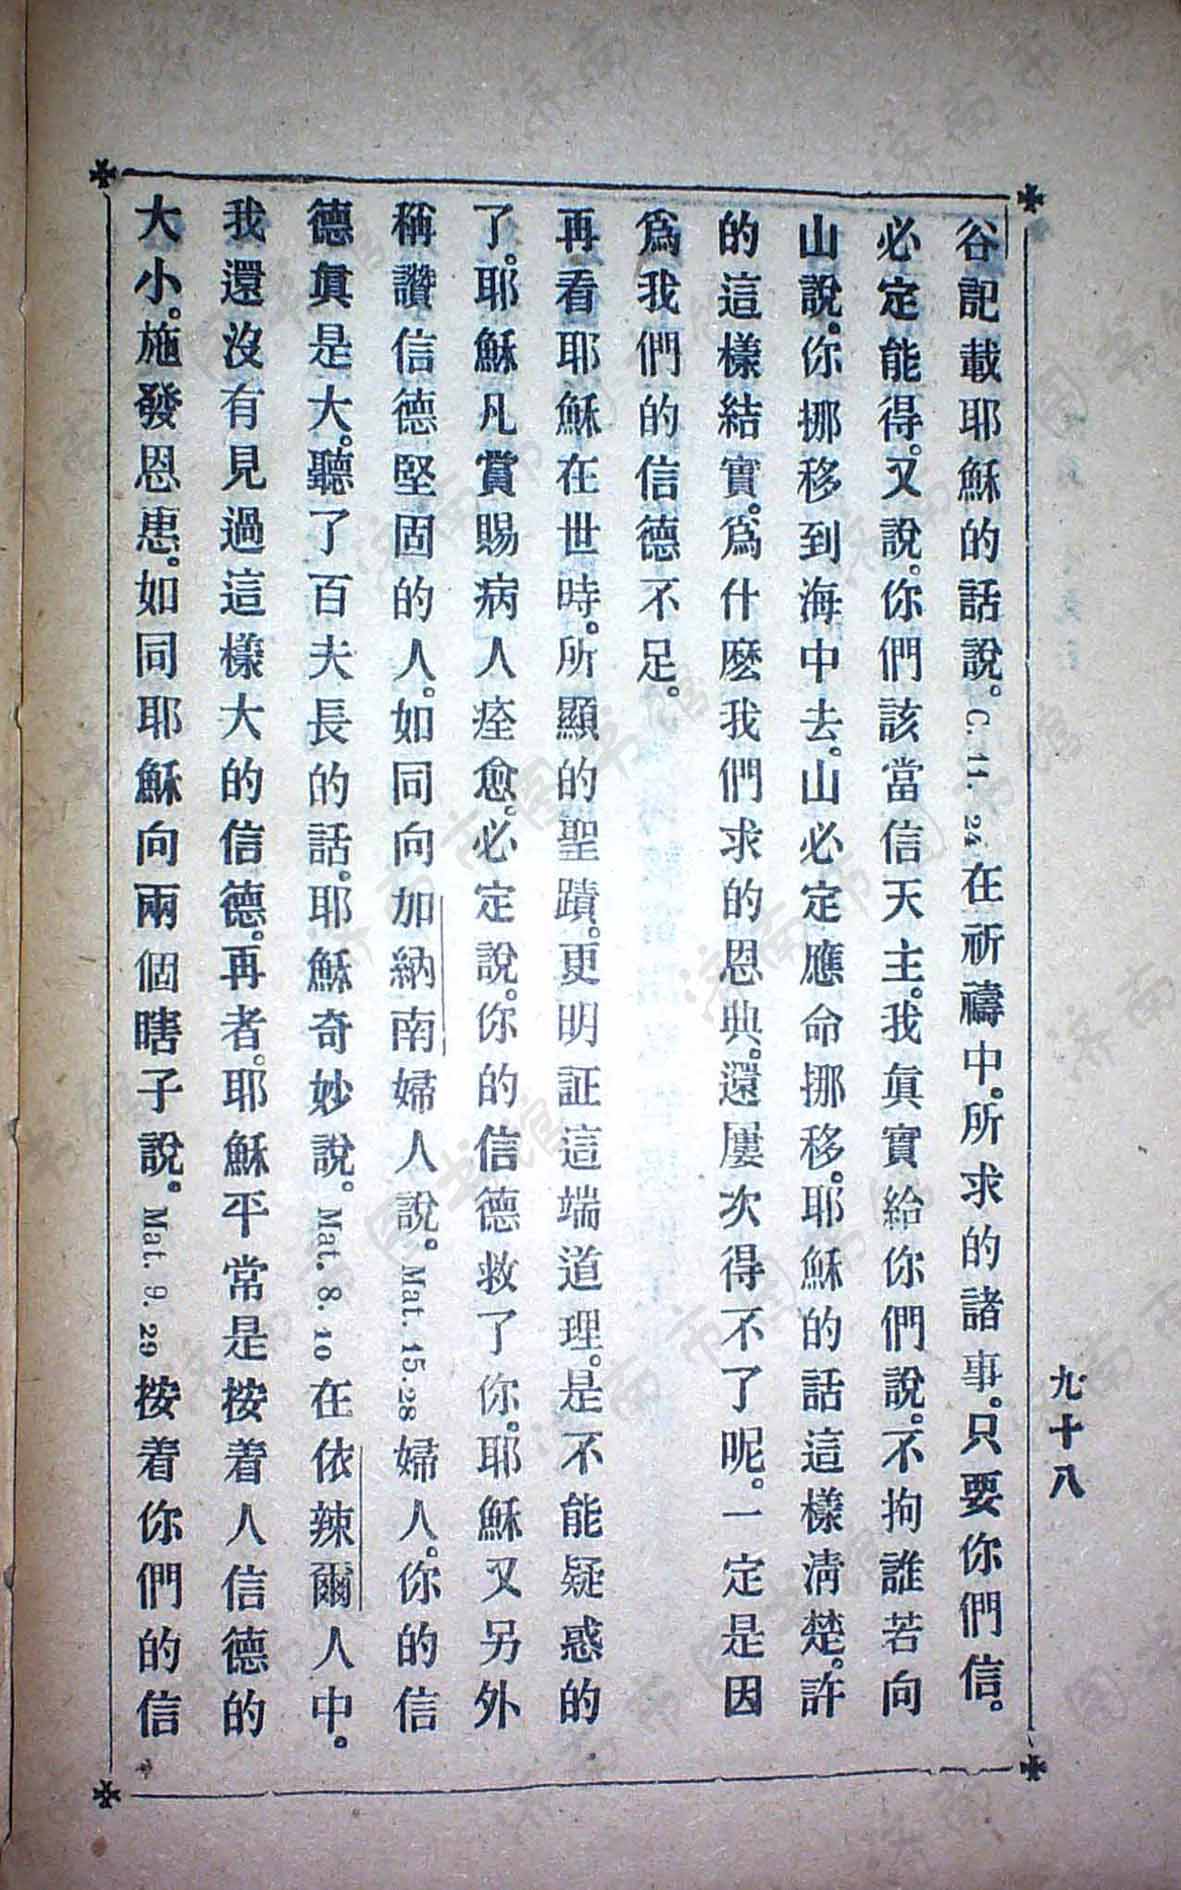 九十八
谷記載耶穌的話說。C. 11. 24 在祈禱中。所求的諸事。只要你們信。
必定能得。又說。你們該當信天主。我眞實給你們說。不拘誰若向
山說。你挪移到海中去。山必定應命挪移。耶穌的話這樣淸楚。許
的這樣結實。爲什麽我們求的恩典。還屢次得不了呢。一定是因
爲我們的信德不足。
再看耶穌在世時。所顯的聖蹟。更明証這端道理。是不能疑惑的
了。耶穌凡賞賜病人痊愈。必定說。你的信德救了你。耶穌又另外
稱讚信德堅固的人。如同向加納南婦人說。Mat. 15. 28 婦人。你的信
德眞是大。聽了百夫長的話。耶穌奇妙說。Mat. 8. 10 在依辣爾人中。
我還沒有見過這樣大的信德。再者。耶穌平常是按着人信德的
大小。施發恩惠。如同耶穌向兩個瞎子說。Mat. 9. 29 按着你們的信
济南市图书馆